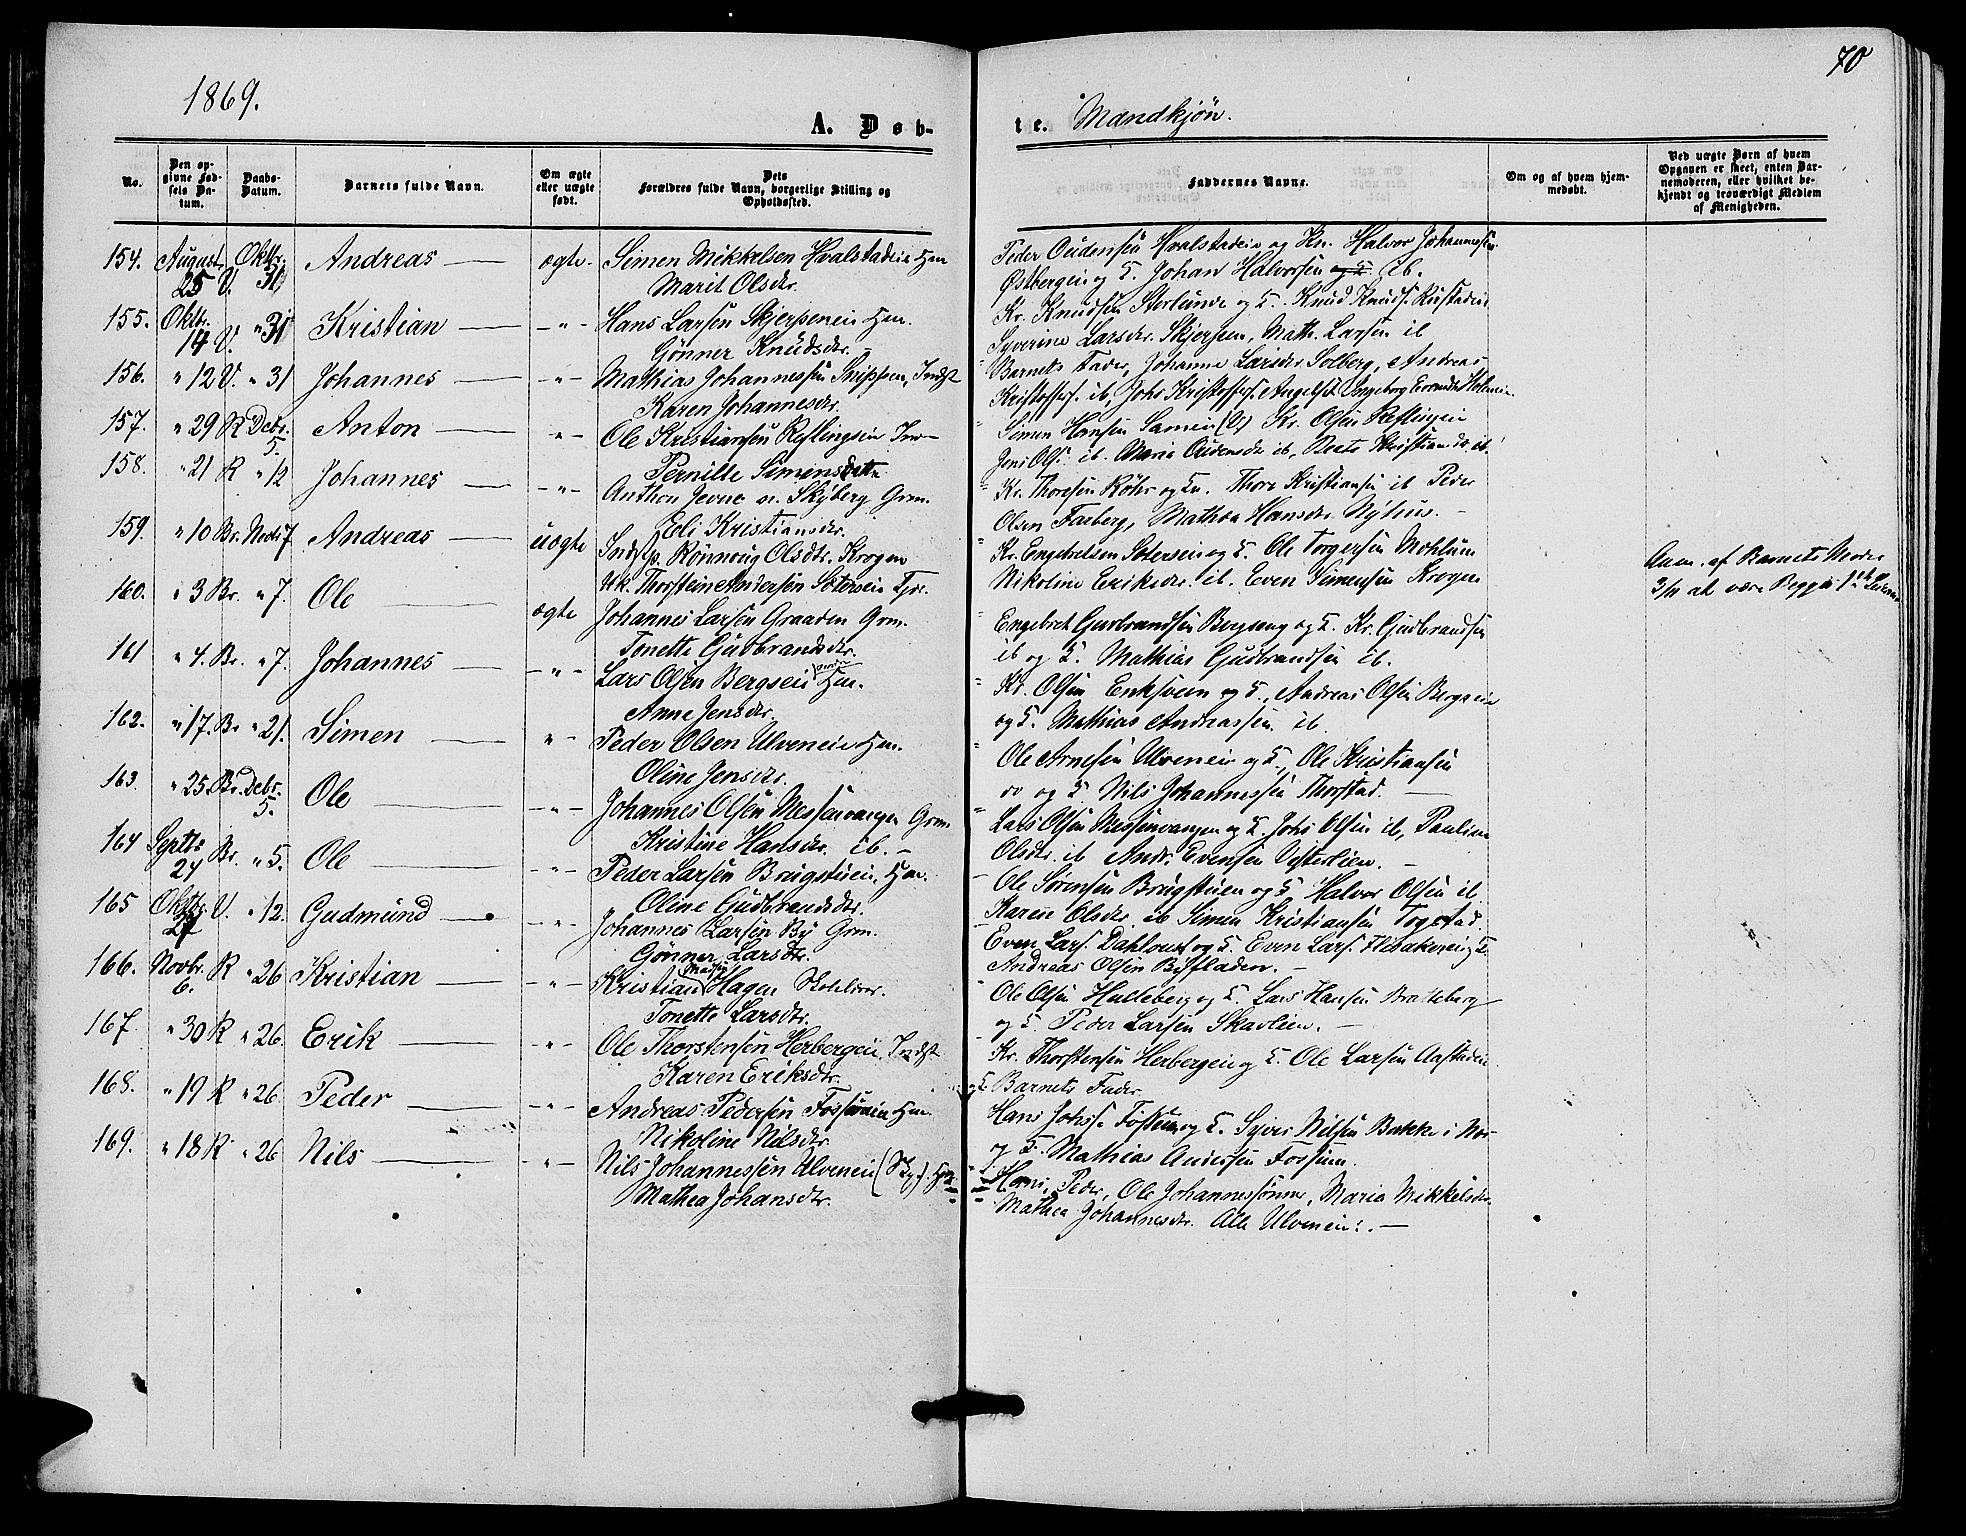 1869.
A. Døb-
te. Mandkjøn.
70
No.
Den op-
givne Fød-
sels Da-
tum.
Daabs-
Datum.
Barnets fulde Navn.
Om ægte
eller uægte
født.
Dets
Forældres fulde Navn, borgerlige Stilling og
Opholdssted.
Faddernes Navne.
Om og af hvem hjem-
medøbt.
Ved uægte Børn af hvem
Opgaven er skeet, enten Bar-
nemoderen, eller hvilket be-
kjendt og troværdigt Medlem
af Menigheden.
154. August 25 V. Oktbr. 31 Andreas ægte. Simen Mikkelsen Hvalstadeie Hm
Marit Olsdtr.
Peder Oudensen Hvalstadeie og Kn. Halvor Johannessen
Østbergeie og K. Johan Halvorsen ib.
155. Oktbr. 14 V. " 31 Kristian - " - Hans Larsen Skjerpeneie Hm.
Gønner Knudsdtr.
Kr. Knudsen Storlunde og K. Knud Knuds. Rustadeie
Syverine Larsdtr. Skjerpen, Math. Larsen ib
156. " 12 V. " 31 Johannes - " - Mathias Johannessen Snipsven, Indst
Karen Johannesdtr.
Barnets Fader, Johanne Larsdtr Solberg, Andreas
Kristoffers. ib, Johs Kristoffers. Ingeborg
157. " 29 R Debr. 5. Anton - " - Ole Kristiansen Reflingseie
Pernille Simensdtr
Simen Hansen Kr. Olsen Reflingeie
Jens Ols. ib. Maria Oudensdtr ib, Beate Kristiansdtr. ib.
158. " 21 R " 12 Johannes - " - Anthon Jevne n. Skyberg Grm.
Eli Kristiansdtr.
Kr. Thoresen Røhr og K. Thore Kristiansen ib Peder
Olsen Faaberg, Mathea Hansdtr. Nyhus.
159. " 10 Br. Novbr 7 Andreas uægte Indstp. Rønnoug Olsdtr. Krogen
Uk. Thorstein Andersen Sotereie Tjst.
Kr. Engebretsen Sotereie og K. Ole Torgersen Mohlum
Nikoline Eriksdtr. ib. Even Simensen Krogen
Anm. af Barnets Moder
3/11 at være Begges 1ste
160. " 3 Br. " 7. Ole ægte Johannes Larsen Graaden Grm.
Tonette Gudbrandsdtr.
Engebret Gudbrandsen Bryseng og K. Kr. Gudbrandsen
ib og K. Mathias Gudbrandsen ib.
161 " 4. Br. " 7. Johannes - " - Lars Olsen Bergseie Hm.
Anne Jensdtr.
Kr. Olsen Enksveen og K., Andreas Olsen Bergseie
og K. Mathias Andreassen ib.
162. " 17. Br " 21. Simen " - Peder Olsen Ulveneie Hm.
Oline Jensdtr.
Ole Arnesen Ulveneie og K., Ole Kristiansen
og K Nils Johannessen Thorstad.
163. " 25. Br. Debr. 5. Ole - " - Johannes Olsen Messenvangen Grm
Kristine Hansdtr. ib.
Lars Olsen Messenvangen og K. Johs Olsen ib, Pauline
Olsdtr. ib Andr. Evensen Vesterlien.
164 Septbr 24 Br. " 5. Ole - " - Peder Larsen Brugstueie Hm.
Oline Gudbrandsdtr.
Ole Sørensen Brugstuen og K Halvor Olsen ib
Karen Olsdtr ib Simen Kristiansen Togstad.
165 Oktbr. 27 V. " 12. Gudmund - " - Johannes Larsen By Grm.
Gønner Larsdtr.
Even Lars. og K. Even Lars. Flebakeneie og K.
Andreas Olsen Byfladen.
166. Novbr. 6. R " 26 Kristian - " - Kristian Madsen Hagen Skolelærer.
Tonette Larsdtr.
Ole Olsen Hulleberg og K. Lars Hansen Bratteberg
og K. Peder Larsen Skavlien.
167. " 30 R " 26. Erik - " - Ole Thorstensen Herbergeie, Indst
Karen Eriksdtr.
Kr. Thorstensen Herbergeie og K. Ole Larsen Aastadeie
og K. Barnets Fader
168. " 19 R " 26 Peder - " - Andreas Pedersen Fossumeie Hm.
Nikoline Nilsdtr
Hans Johss Fossum og K. Syver Nilsen Bakke i
og K. Mathias Andersen Fossum.
169. " 18 R " 26 Nils - " - Nils Johannessen Ulveneie Hm
Mathea Johansdtr.
Hans, Peder, Ole Johannessønner, Maria Mikkelsdtr.
Mathea Johannesdtr. Alle Ulveneie.